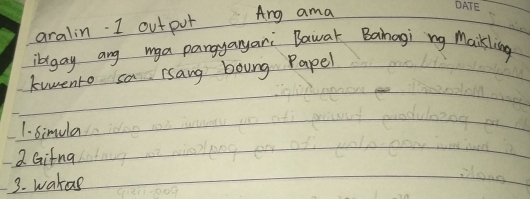 DATE
aralin - 1 output Ang ama
ibigay ang mga pangyayari Bawat Bahagi ng Maikling
kuwento sa isang boung Papel
1. Simula
2 Gitna
3. wakas